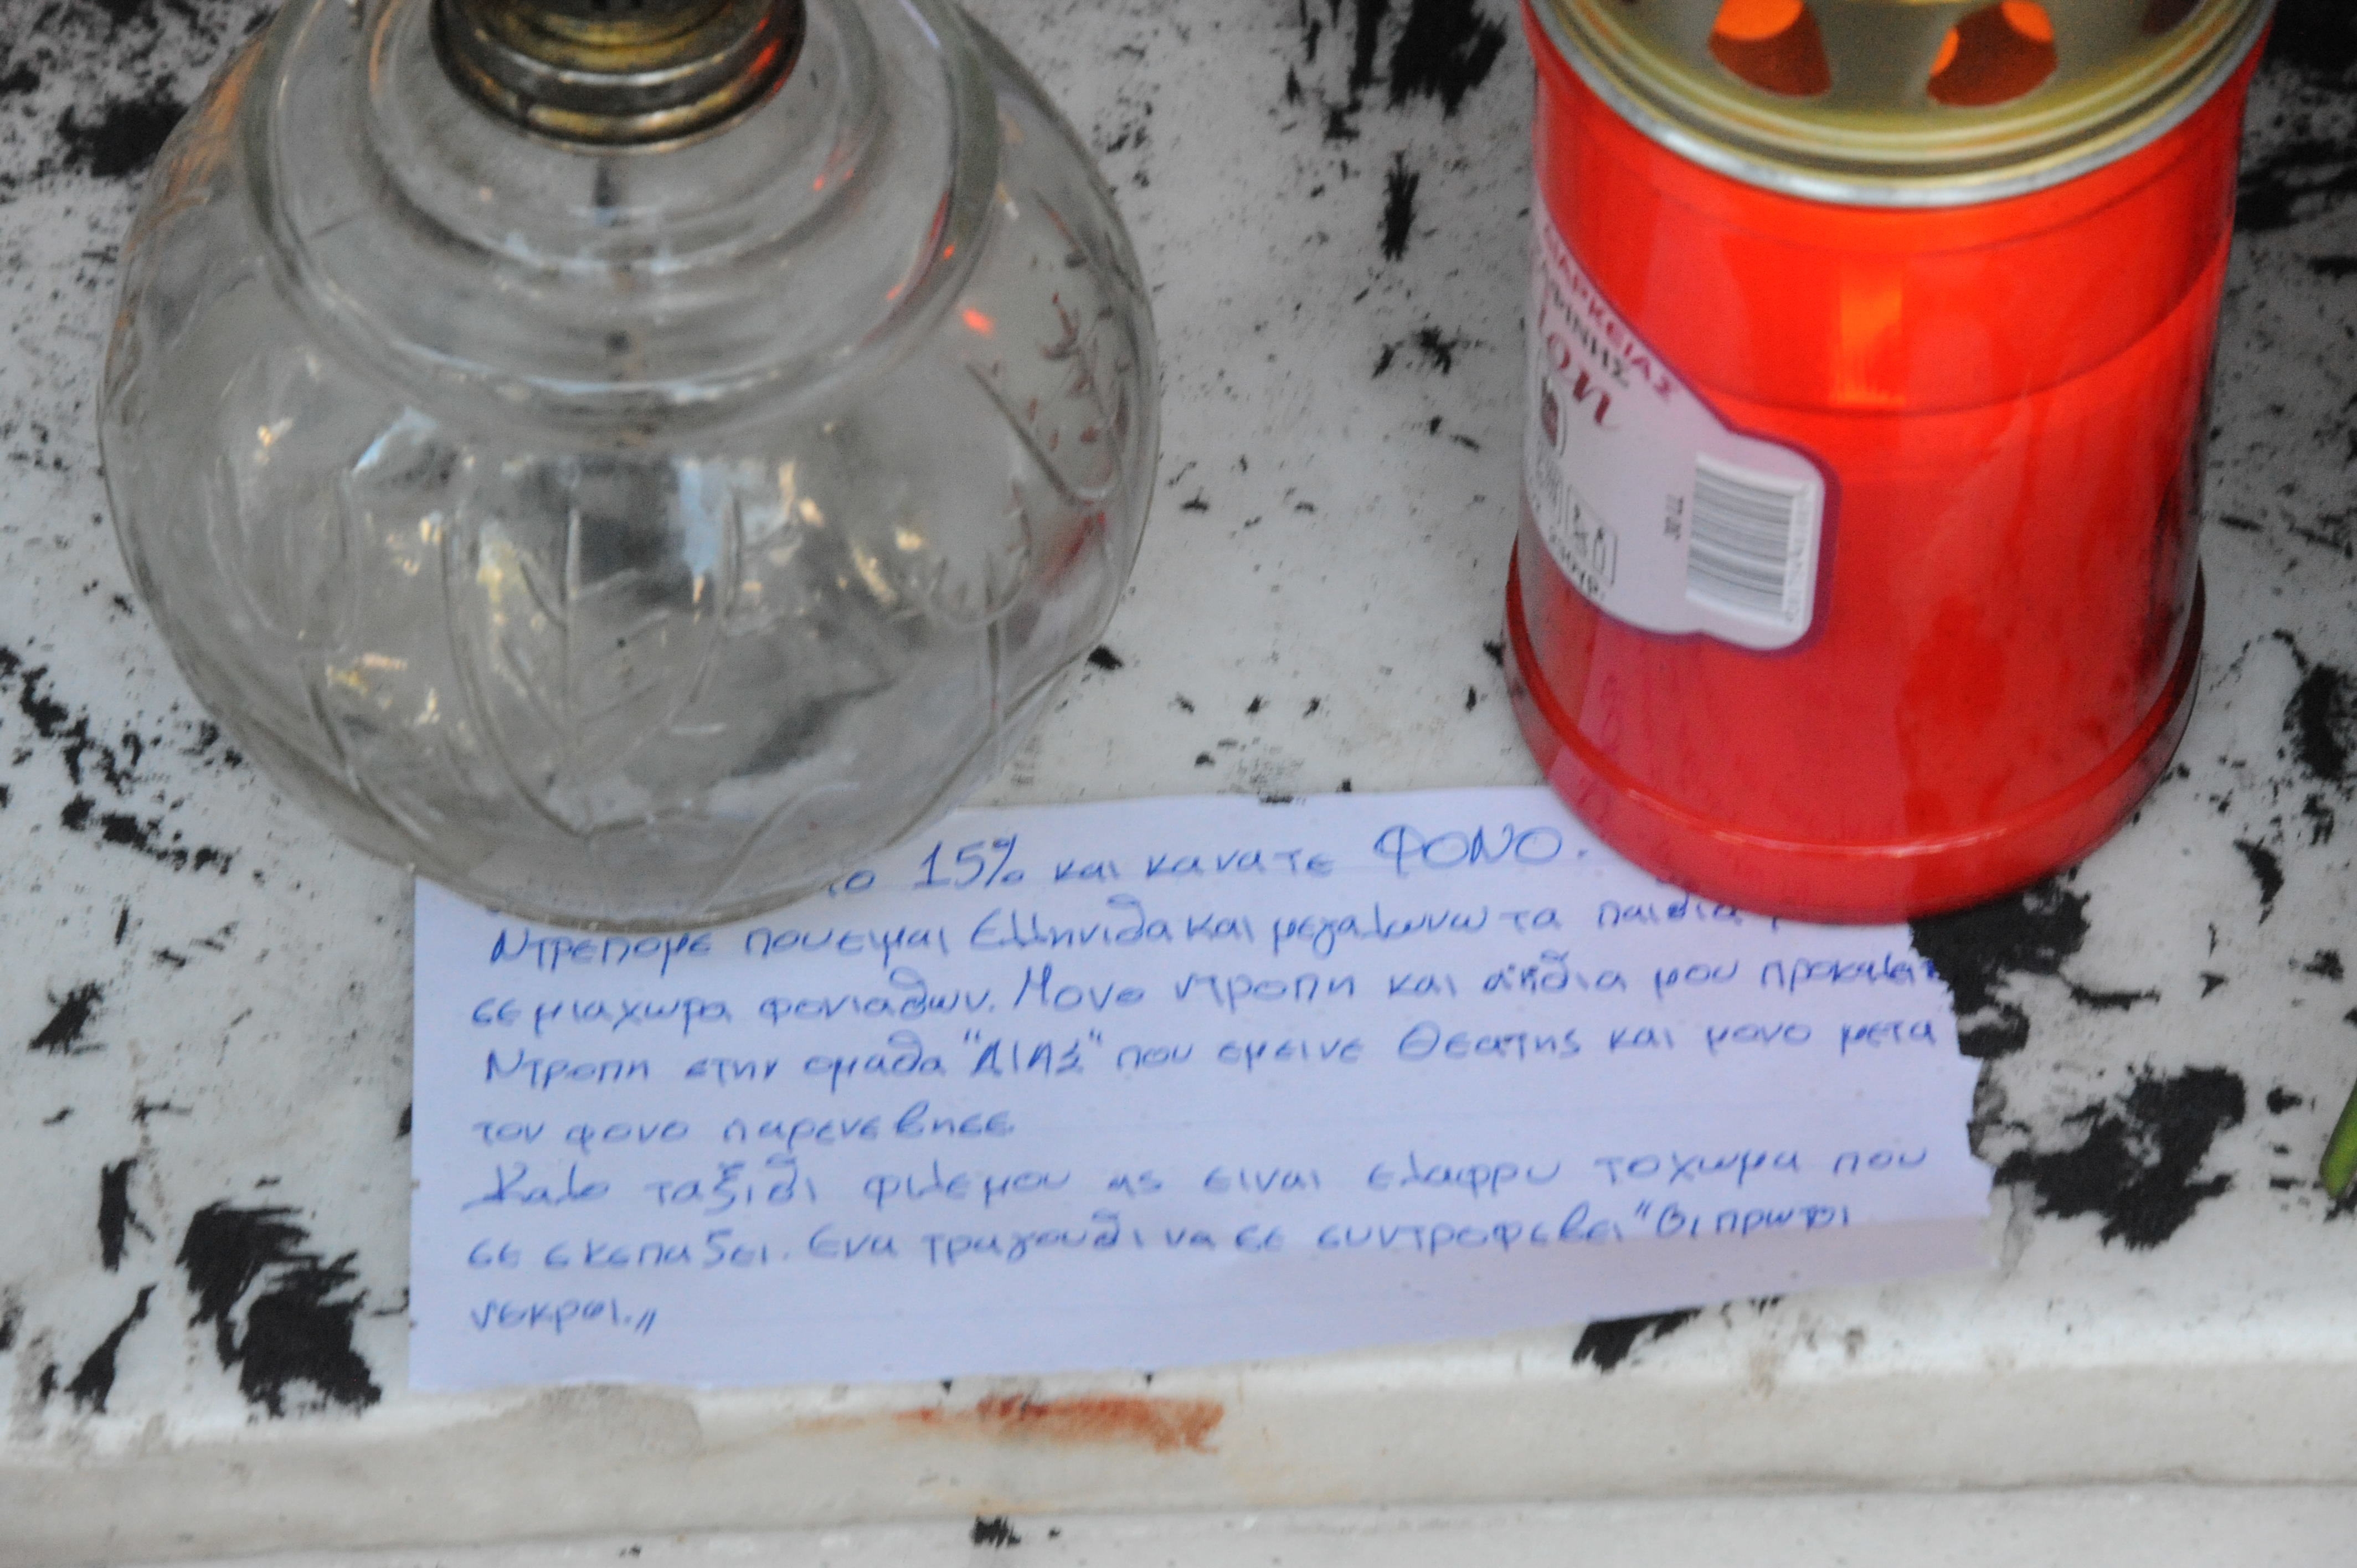 ΔΙΑΡΚΕΙΑΣ
το 15% και κανατε ΦΟΝΟ.
Ντρεπομε που ειμαι Ελληνιδα και μεγαλωνω τα παιδια
σε μια χωρα φονιαδων. Μονο ντροπη και αηδια μου προκαλειτε
Ντροπη στην ομαδα "ΔΙΑΣ" που εμεινε Θεατης και μονο μετα
τον φονο παρενεβησε
Καλο ταξιδι φιλε μου ας ειναι ελαφρυ το χωμα που
σε σκεπαζει. Ενα τραγουδι να σε συντροφεβει "Οι πρωτοι
νεκροι.„